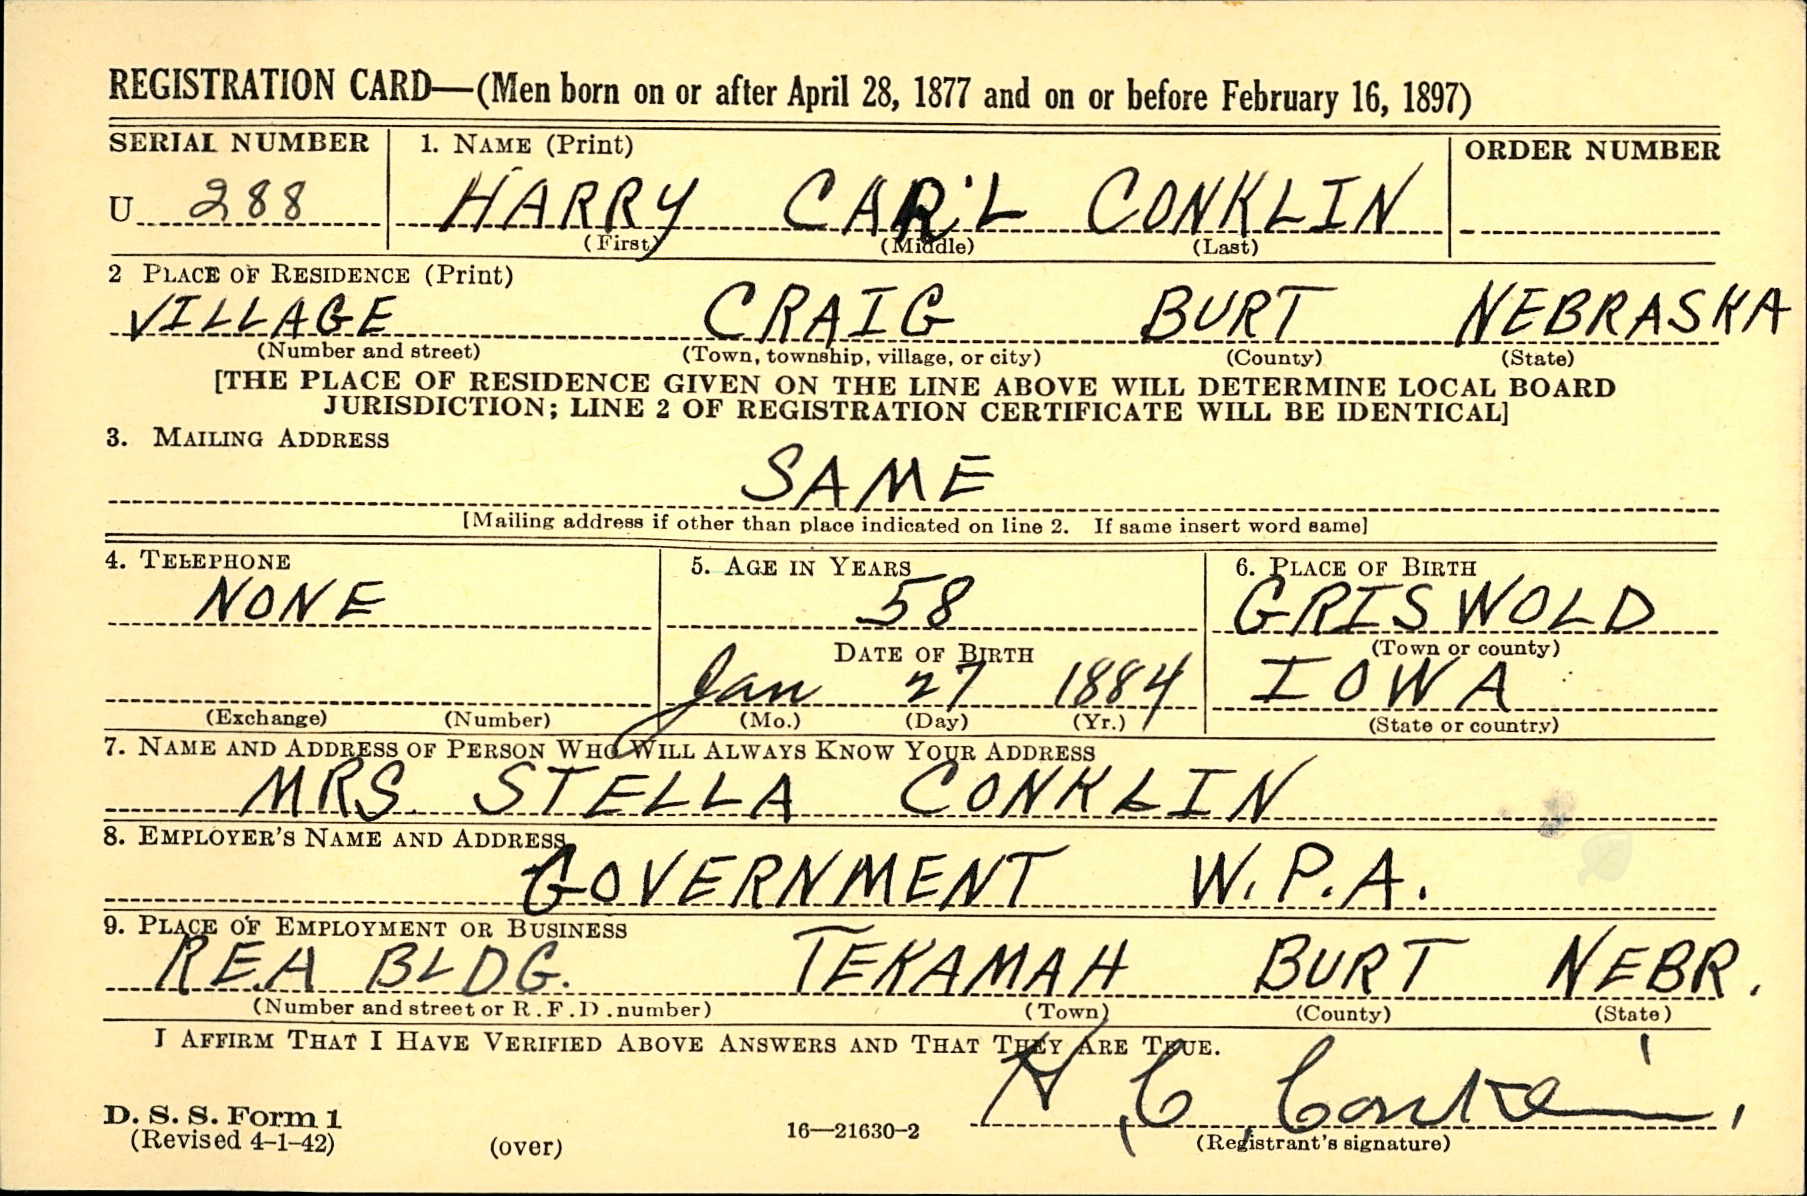 REGISTRATION CARD—(Men born on or after April 28, 1877 and on or before February 16, 1897)
SERIAL NUMBER 1. NAME (Print) ORDER NUMBER
U 288 HARRY CARL CONKLIN
(First) (Middle) (Last)
2 PLACE OF RESIDENCE (Print)
VILLAGE CRAIG BURT NEBRASKA
(Number and street) (Town, township, village, or city) (County) (State)
[THE PLACE OF RESIDENCE GIVEN ON THE LINE ABOVE WILL DETERMINE LOCAL BOARD
JURISDICTION; LINE 2 OF REGISTRATION CERTIFICATE WILL BE IDENTICAL]
3. MAILING ADDRESS
SAME
[Mailing address if other than place indicated on line 2. If same insert word same]
4. TELEPHONE 5. AGE IN YEARS 6. PLACE OF BIRTH
NONE 58 GRISWOLD
DATE OF BIRTH (Town or county)
Jan 27 1884 IOWA
(Exchange) (Number) (Mo.) (Day) (Yr.) (State or country)
7. NAME AND ADDRESS OF PERSON WHO WILL ALWAYS KNOW YOUR ADDRESS
MRS. STELLA CONKLIN
8. EMPLOYER'S NAME AND ADDRESS
GOVERNMENT W.P.A.
9. PLACE OF EMPLOYMENT OR BUSINESS
R.E.A BLDG. TEKAMAH BURT NEBR.
(Number and street or R.F.D. number) (Town) (County) (State)
I AFFIRM THAT I HAVE VERIFIED ABOVE ANSWERS AND THAT THEY ARE TRUE.
H, C, Conklin,
D. S. S. Form 1
(Revised 4-1-42) (over) 16—21630-2 (Registrant's signature)